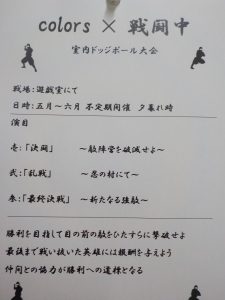 colors × 戦闘中
室内ドッジボール大会
戦場:遊戯室にて
日時:五月~六月 不定期開催 夕暮れ時
演目
壱:「決闘」 ~敵陣営を破滅せよ~
弐:「乱戦」 ~忍の村にて~
参:「最終決戦」 ~新たなる強敵~
勝利を目指して目の前の敵をひたすらに撃破せよ
最後まで戦い抜いた英雄には報酬を与えよう
仲間との協力が勝利への道標となる